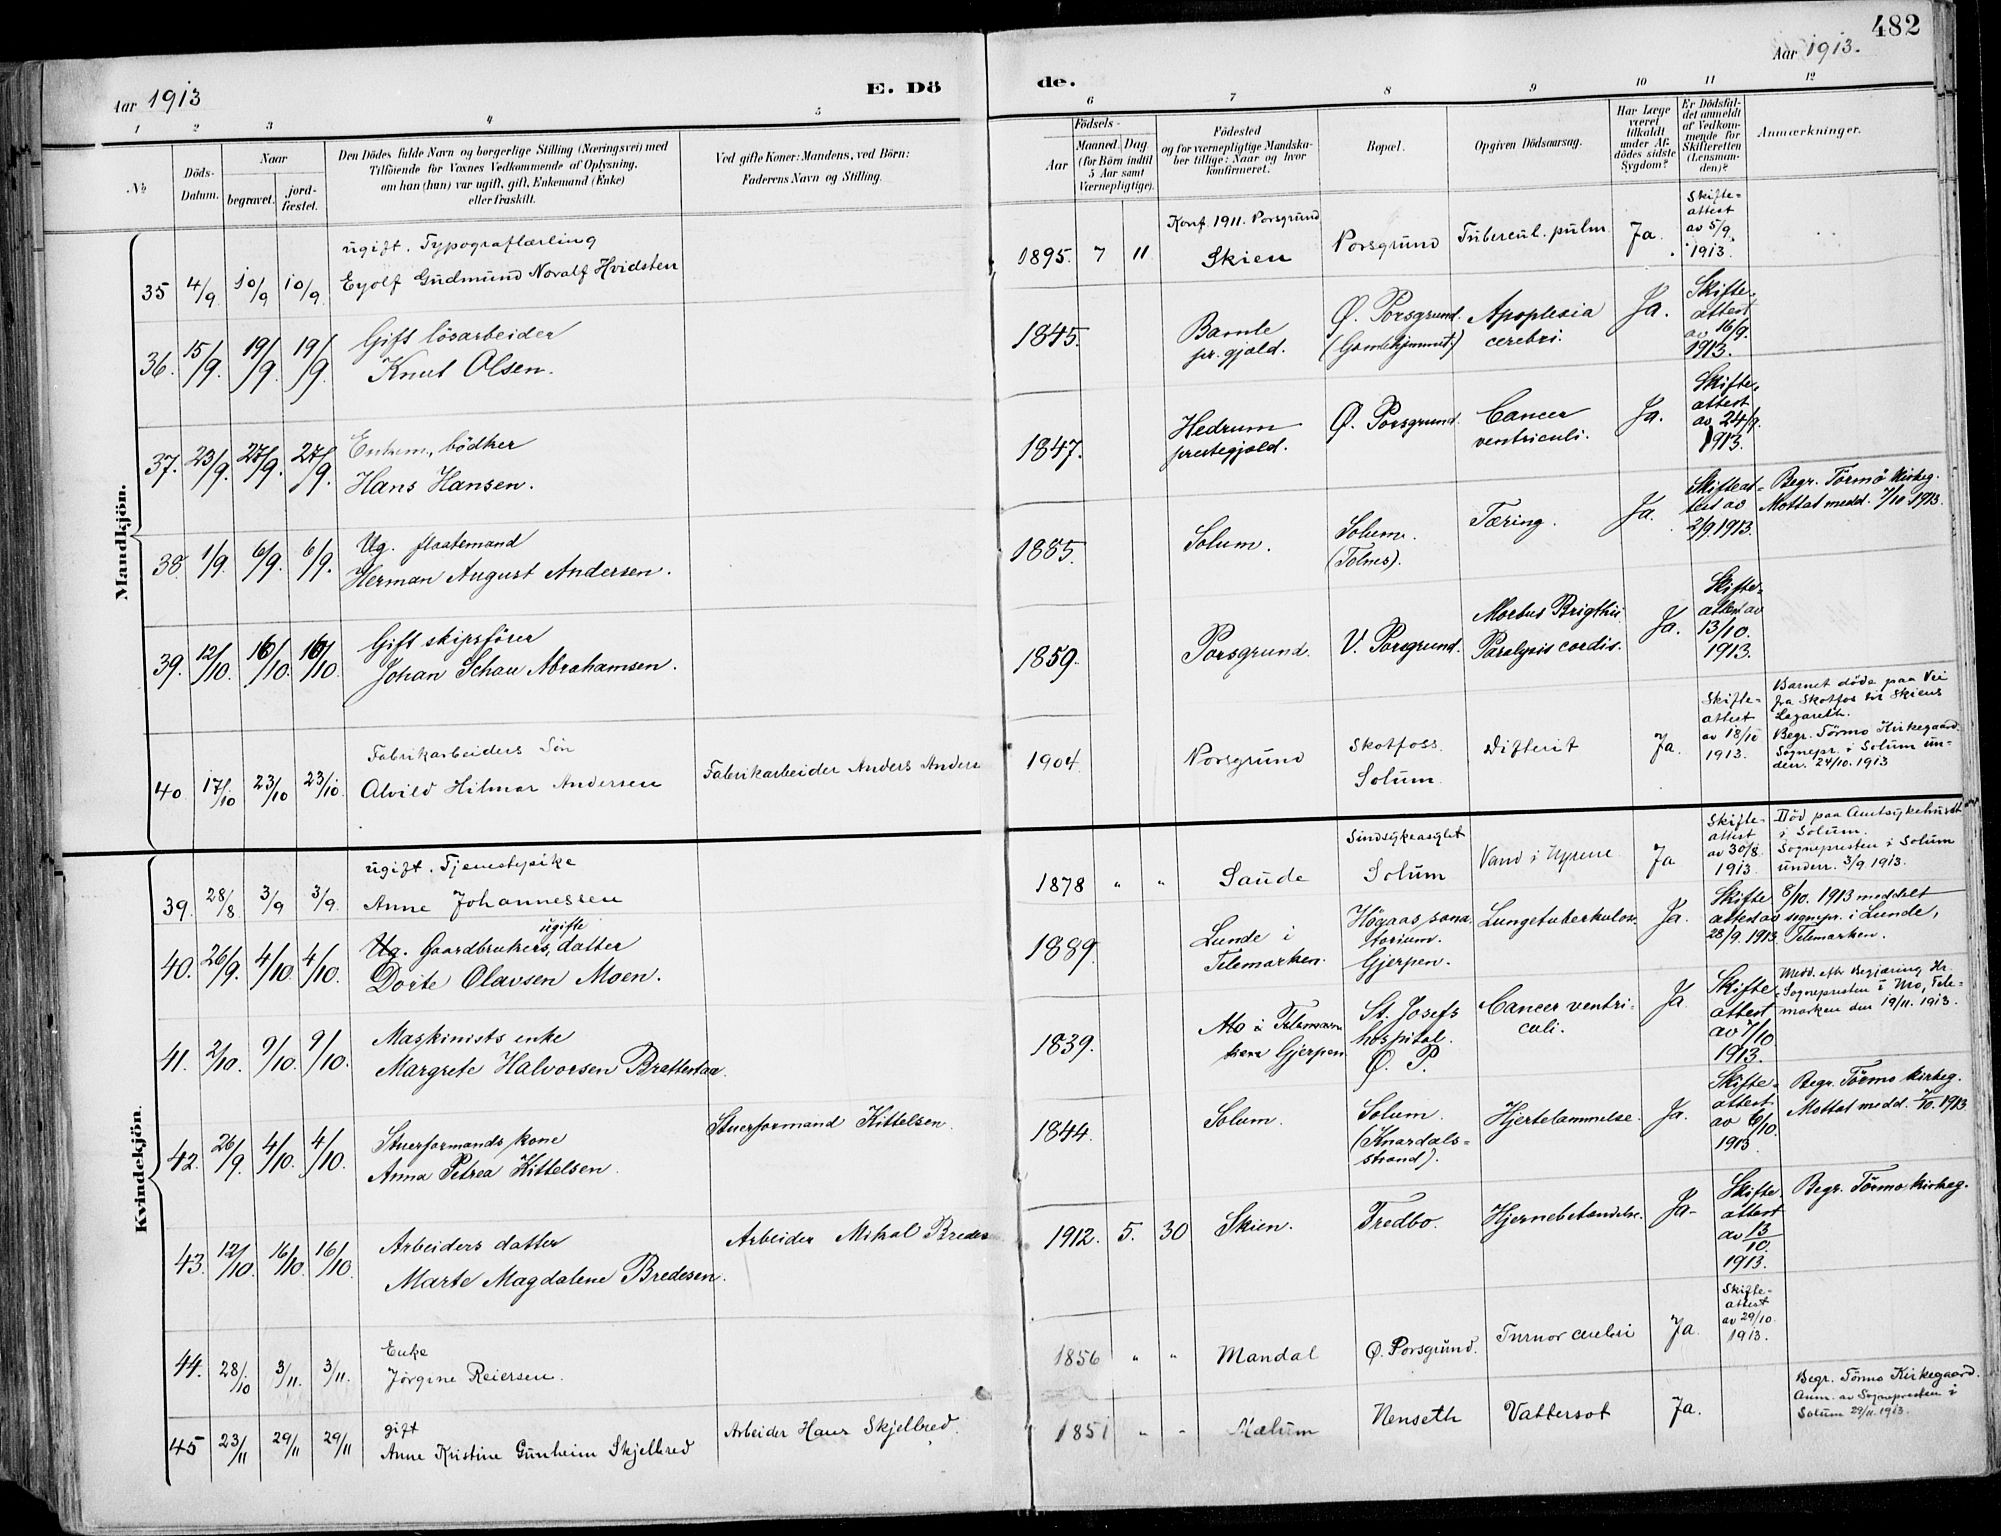 482
Aar 1913
E. Dö
de.
Aar 1913.
1 2 3 4 5 6 7 8 9 10 11 12
No
Döds-
Datum.
Naar
begravet.
jord-
fæstet.
Den Dödes fulde Navn og borgerlige Stilling (Næringsvei) med
Tilföiende for Voxnes Vedkommende af Oplysning,
om han (hun) var ugift, gift, Enkemand (Enke)
eller fraskilt.
Ved gifte Koner: Mandens, ved Börn:
Faderens Navn og Stilling.
Födsels-
Aar
Maaned. Dag
(for Börn indtil
5 Aar samt
Værnepligtige).
Födested
og for værnepligtige Mandska-
ber tillige: Naar og hvor
konfirmeret.
Bopæl.
Opgiven Dödsaarsag.
Har Læge
været
tilkaldt
under Af-
dödes sidste
Sygdom?
Er Dödsfal-
det anmeldt
af Vedkom-
mende for
Skifteretten
(Lensman-
den)?
Anmærkninger.
Mandkjön.
35 4/9 10/9 10/9.
ugift. Typograflærling
Eyolf Gudmund Noralf Hvidsten
1895. 7 11
Konf 1911. Porsgrund
Skien
Porsgrund
Tubercul. pulm
Ja.
Skifte-
attest
av 5/9.
1913.
36. 15/9. 19/9. 19/9.
Gift lösarbeider
Knut Olsen.
1845.
Bamle
pr.gjæld.
Ø. Porsgrund.
Apoplexia
cerebri.
Ja.
Skifte-
attest
av 16/9.
1913.
37. 23/9. 27/9. 27/9.
Enkem., bödker
Hans Hansen.
1847.
Hedrum
prestegjæld.
Ø. Porsgrund.
Cancer
ventriculi.
Ja.
Skifte-
attest
av 24/9.
1913.
38. 1/9. 6/9. 6/9.
Ug. flaatemand
Herman August Andersen.
1855.
Solum.
Solum.
(Tolnes).
Tæring.
Ja.
Skifteat-
test av
2/9.1913.
Begr. Törmo Kirkeg.
Mottat medd. 7/10 1913.
39. 12/10. 16/10. 16/10.
Gift skipsförer
Johan Schau Abrahamsen.
1859.
Porsgrund.
V. Porsgrund.
Morbus Brigthii
Paralysis cordis.
Ja.
Skifte-
attest av
13/10.
1913.
40 17/10 23/10 23/10.
Fabrikarbeiders Sön
Alvild Hilmar Andersen
Fabrikarbeider Anders Anders
1904.
Porsgrund
Skotfoss
Solum.
Difterit
Ja.
Skifte-
attest
av 18/10
1913.
Barnet döde paa Vei
fra Skotfos til Skiens
Lazareth.
Begr. Törmo Kirkegaard.
Sognepr. i Solum un-
derr. 24/10. 1913
Kvindekjön.
39. 28/8 3/9 3/9.
ugift. Tjenestepike
Anne Johannessen
1878 " "
Saude
Sindsykeasylet
Solum
Vand i Nyrene.
Ja
Skifte-
attest
av 30/8.
1913.
Död paa Amtsykehuset
i Solum.
Sognepresten i Solum
underr. 3/9 1913.
40. 26/9. 4/10. 4/10.
ugifte
Ug. Gaardbrukers, datter
Dorte Olavsen Moen.
1889.
Lunde i
Telemarken.
Högaas sana
torium.
Gjerpen.
Lungetuberkulose
Ja.
Skifte
attest av
28/9. 1913.
8/10. 1913 meddelt
sognepr. i Lunde,
Telemarken.
41. 2/10. 9/10. 9/10.
Maskinists enke
Margrete Halvorsen Brattestaa.
1839.
Mo i Telemar
ken Gjerpen
St. Josefs
hospital.
Ø. P.
Cancer ventri-
culi.
Ja.
Skifte-
attest
av 7/10
1913.
Medd. efter Begjæring Hr.
Sognepresten i Mo, Tele-
marken den 19/11. 1913.
42. 26/9. 4/10. 4/10.
Styrmands kone
Anna Petrea Kittelsen.
Styrmand Kittelsen.
1844.
Solum.
Solum.
(Knardals-
strand).
Hjertelammelse.
Ja.
Skifte-
attest
av 6/10.
1913.
Begr. Törmo kirkeg.
Mottat medd. 7/10. 1913
43. 12/10. 16/10. 16/10.
Arbeiders datter
Marte Magdalene Bredesen.
Arbeider Mikal Bredes
1912. 5. 30
Skien.
Fredbo.
Hjernebetændelse.
Ja.
Skifte-
attest
av 13/10.
1913.
Begr. Törmo kirkeg.
44. 28/10 3/11. 3/11.
Enke
Jörgine Reiersen.
1856 " "
Mandal
Ø. Porsgrund.
Tumor cerebri
Ja.
Skifte-
attest
av 29/10.
1913.
45 23/11 29/11 29/11
gift
Anne Kristine Gunheim Skjelbred
Arbeider Hans Skjelbred.
1851 " "
Mælum
Nenseth
Vattersot
Ja.
Begr. Törmo Kirkegaard.
Anm. av Sognepresten i
Solum 29/11. 1913.